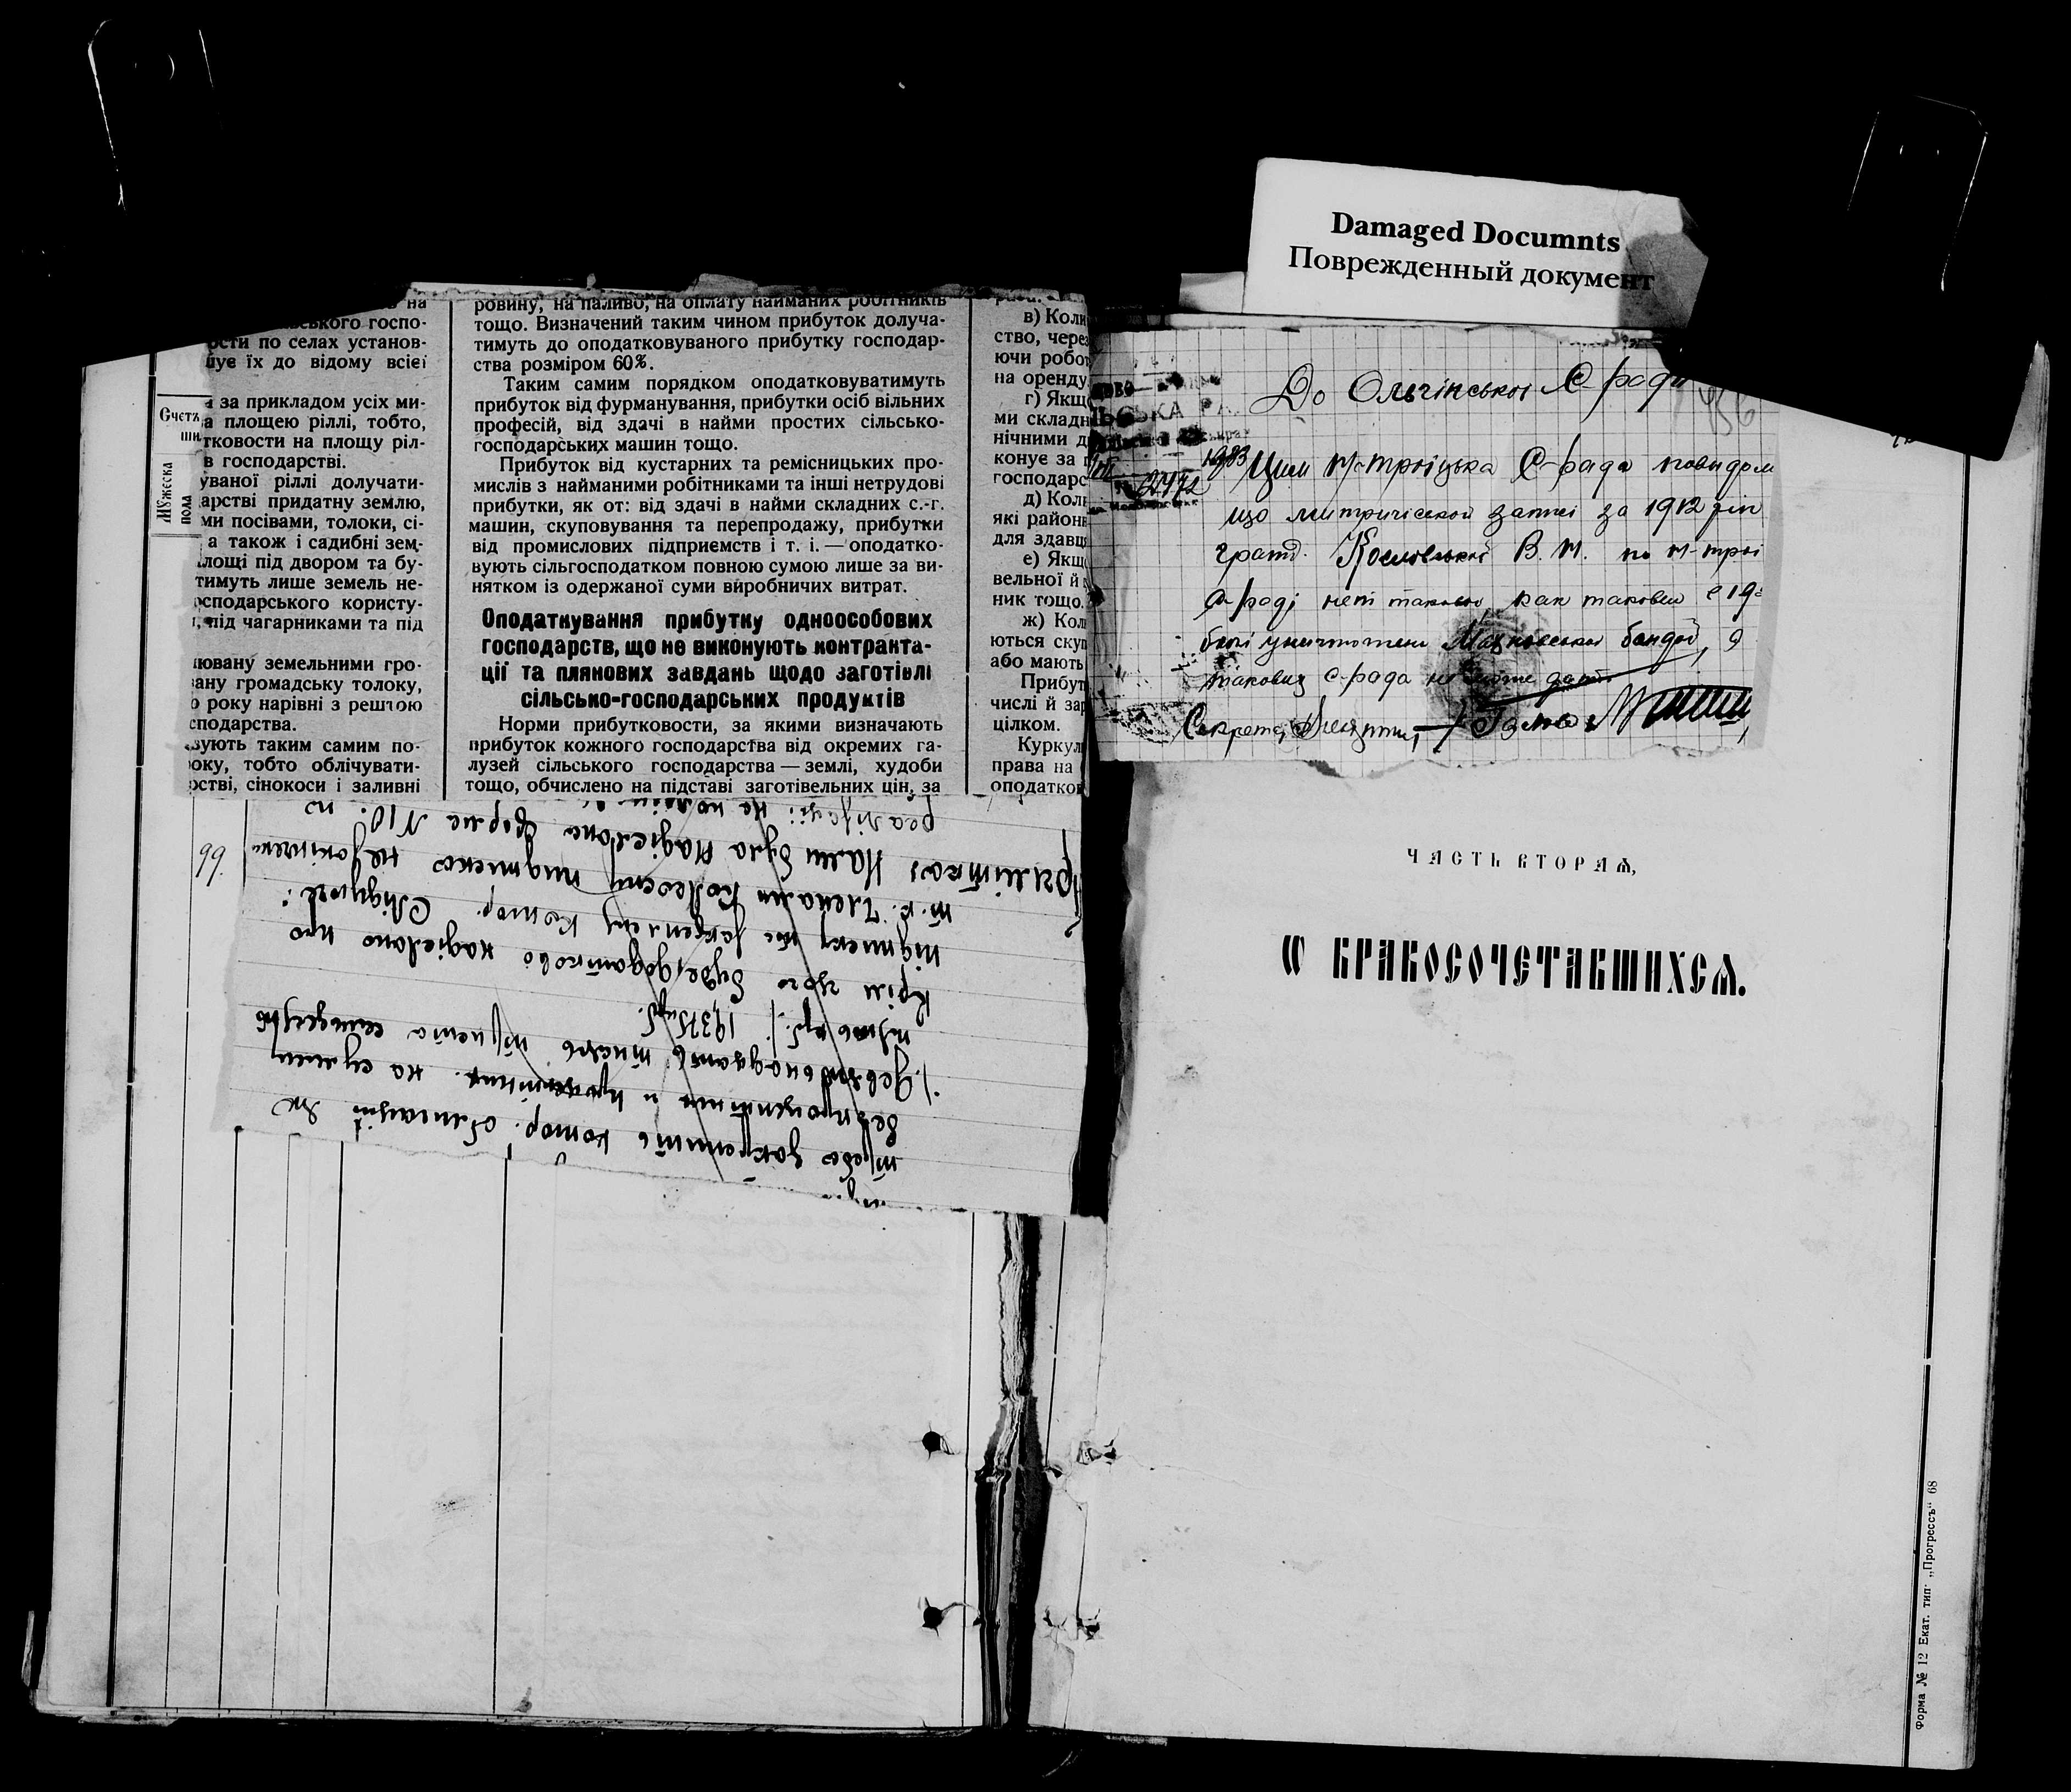 Damaged Documnts
Поврежденный документ
на
ського госпо-
ости по селах установ-
шує їх до відому всієї
за прикладом усіх ми-
за площею ріллі, тобто,
тковости на площу ріл-
в господарстві.
уваної ріллі долучати-
арстві придатну землю,
ми посівами, толоки, сі-
а також і садибні зем-
лощі під двором та бу-
тимуть лише земель не-
осподарського користу-
під чагарниками та під
човану земельними гро-
ану громадську толоку,
о року нарівні з рештою
сподарства.
зують таким самим по-
оку, тобто облічувати-
рстві, сінокоси і заливні
ровину, на паливо, на оплату найманих робітників
тощо. Визначений таким чином прибуток долуча-
тимуть до оподатковуваного прибутку господар-
ства розміром 60%.
Таким самим порядком оподатковуватимуть
прибуток від фурманування, прибутки осіб вільних
професій, від здачі в найми простих сільсько-
господарських машин тощо.
Прибуток від кустарних та ремісницьких про-
мислів з найманими робітниками та інші нетрудові
прибутки, як от: від здачі в найми складних с.-г.
машин, скуповування та перепродажу, прибутки
від промислових підприємств і т. і. — оподатко-
вують сільгосподатком повною сумою лише за ви-
нятком із одержаної суми виробничих витрат.
Оподаткування прибутку одноособових
господарств, що не виконують контракта-
ції та плянових завдань щодо заготівлі
сільсько-господарських продуктів
Норми прибутковости, за якими визначають
прибуток кожного господарства від окремих га-
лузей сільського господарства — землі, худоби
тощо, обчислено на підставі заготівельних цін, за
в) Коли
ство, через
ючи робот
на оренду.
г) Якщо
ми складн
нічними д
конує за п
господарс
д) Коли
які районн
для здавц
е) Якщо
вельної й
ник тощо.
ж) Коли
ються скуп
або мають
Прибут
числі й зар
цілком.
Куркул
права на
оподатков
Счетъ
Мужеска
пола
99.
треба закрепить контор. облигации
безпроцентних и процентних. на сумму
Девятьнадцать тисяч триста семьдесять
пять крб.) 19375 крб.
Крім цього буде додатково надіслано про
підписку та закреплену контор. Слідуюче:
т.к. членами Колгоспу подписка незакінчен
Примітка: Нами була надіслана форма N 10:
До Ольгінської С-ради
Цим Н-троїцька С-рада повидом
що митричіской запісі за 1912 рік
гром. Козловської В. М. по Н-трої
С-раді неті таковой как таковие
билі уничтожени Махновской бандой,
таковиз С-рада не може дать
Секретар
ЧАСТЬ ВТОРАѦ,
Ѡ БРАКОСОЧЕТАВШИХСѦ.
Форма № 12 Екат. тип. „Прогрессъ" 68